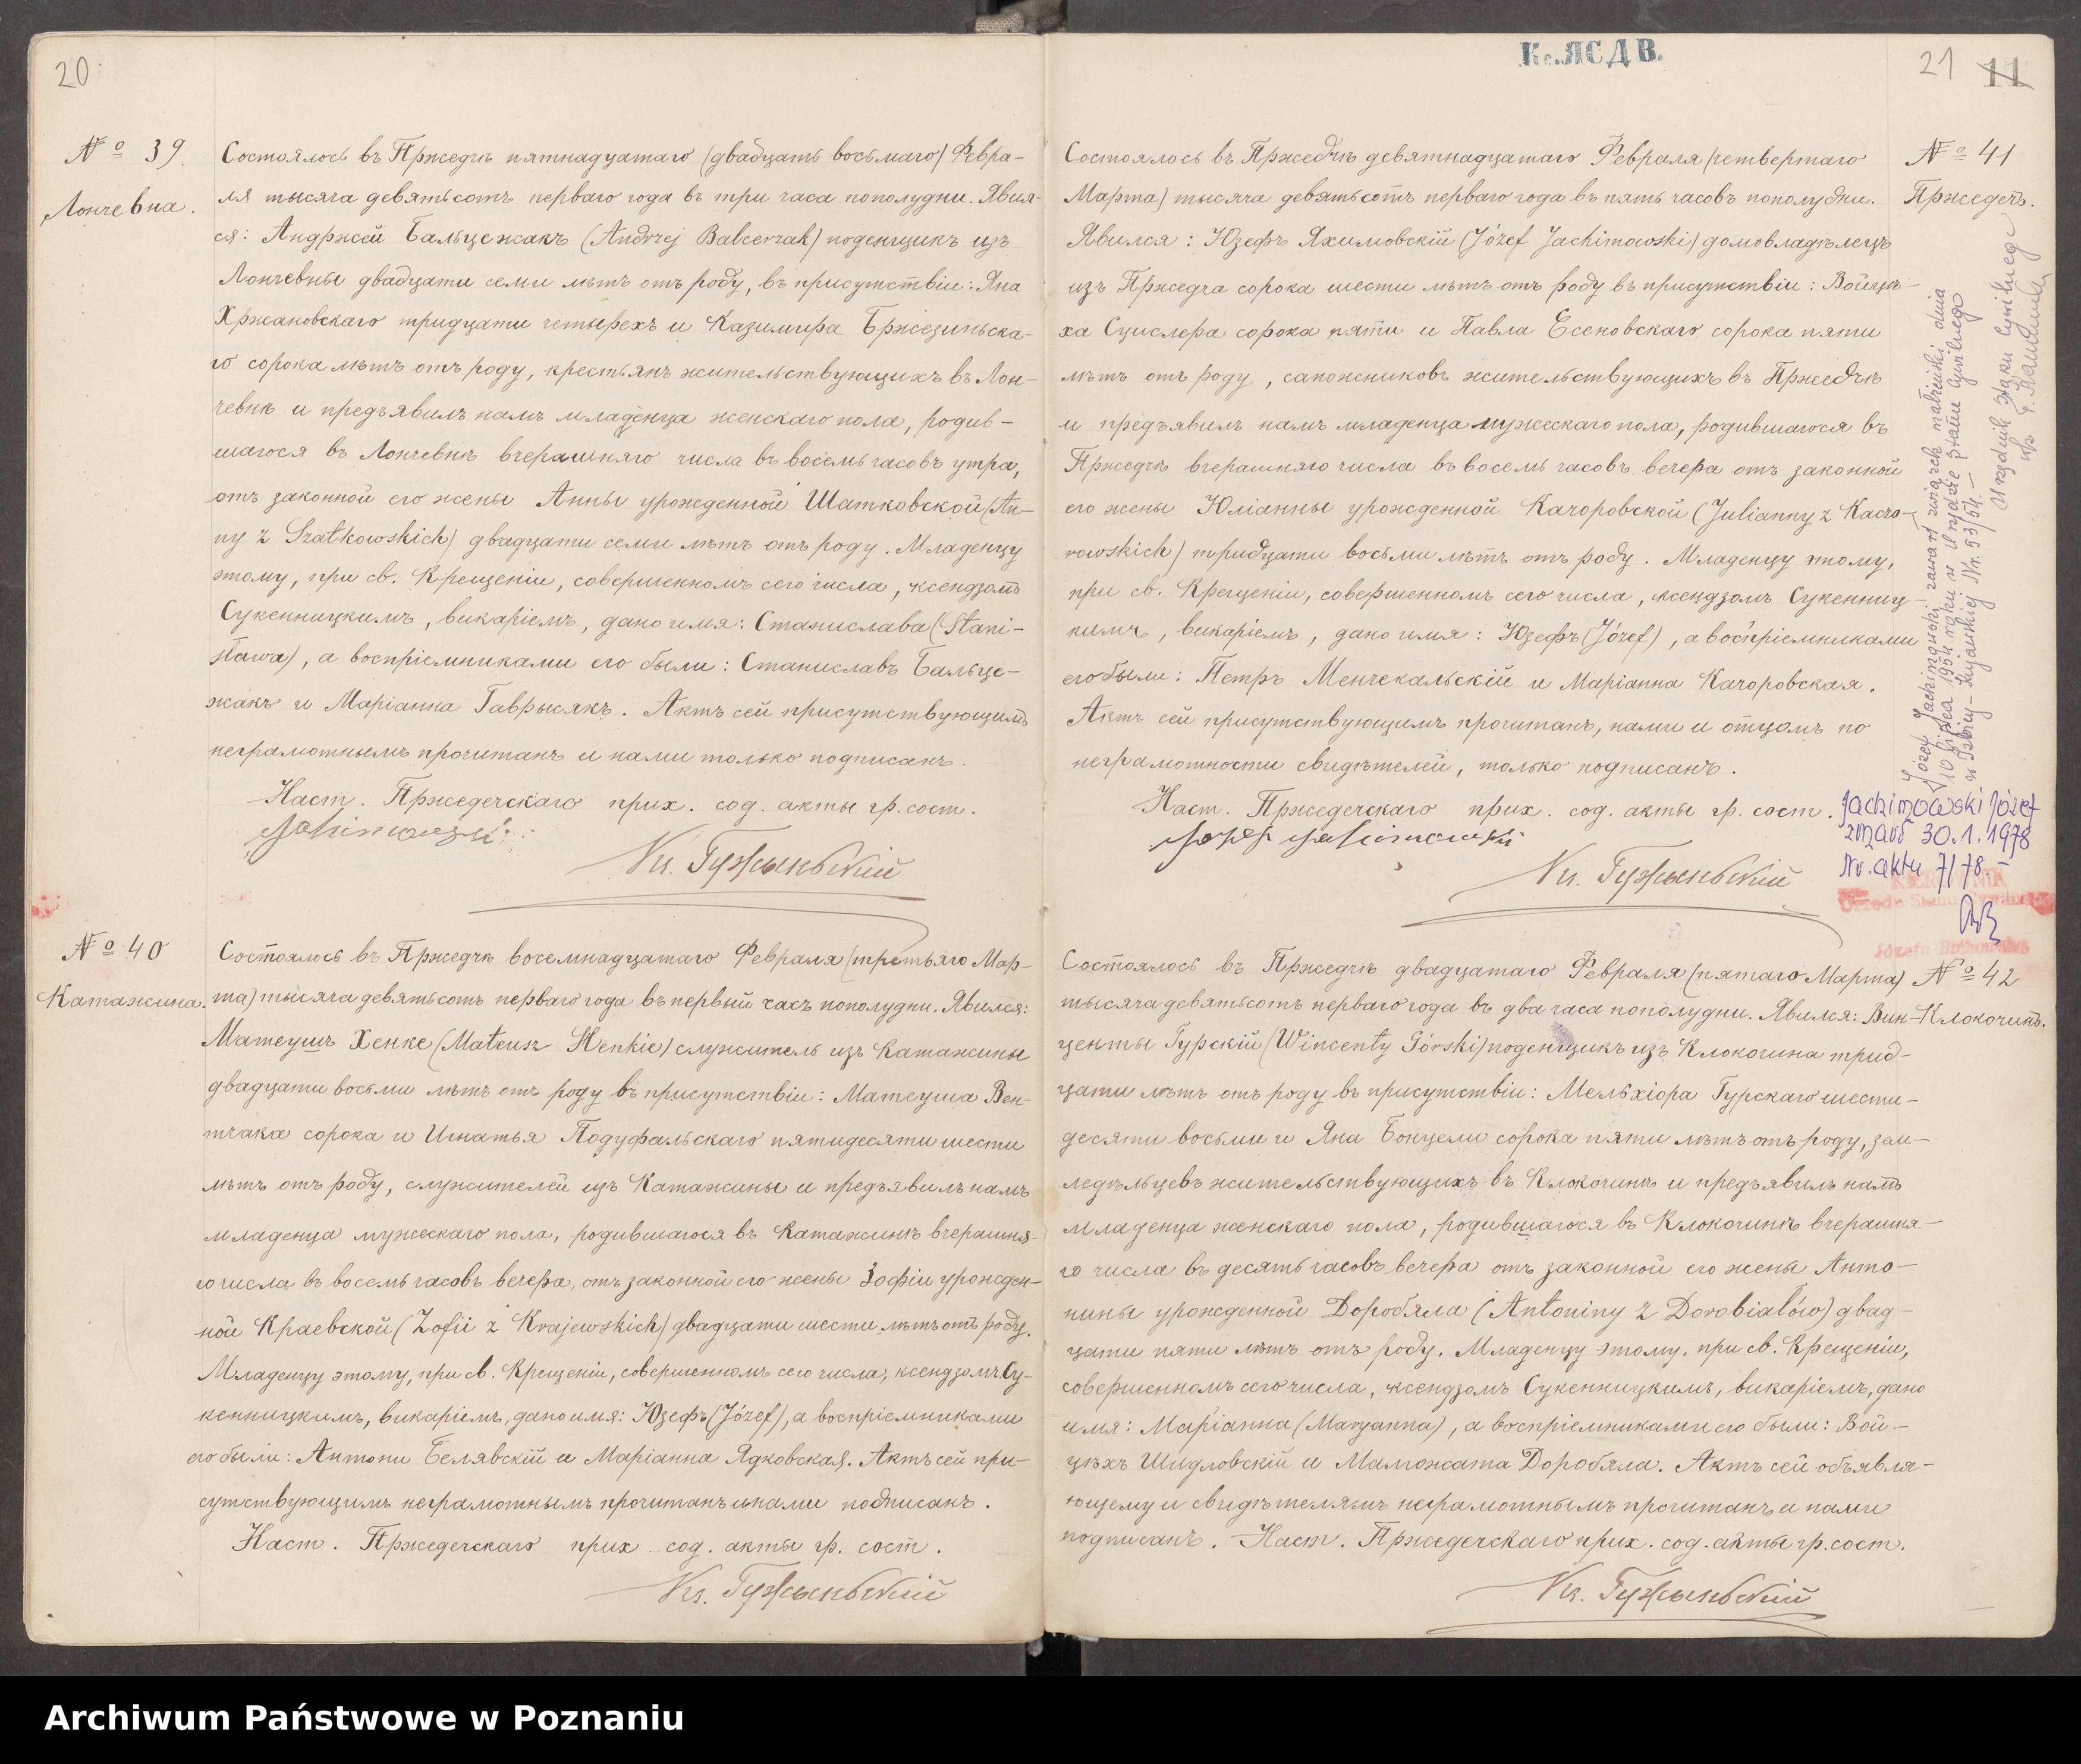 20
№ 39.
Лончевна.
Состоялось въ Пржедчѣ пятнадцатаго (двадцать восьмаго) Февра-
ля тысяча девятьсотъ перваго года въ три часа пополудни. Явил-
ся: Андржей Бальцежакъ (Andrzej Balcerzak) поденщикъ изъ
Лончевны двадцати семи лѣтъ отъ роду, въ присутствіи: Яна
Хржановскаго тридцати четырехъ и Казимира Бржезиньска-
го сорока лѣтъ отъ роду, крестьянъ жительствующихъ въ Лон-
чевнѣ и предъявилъ намъ младенца женскаго пола, родив-
шагося въ Лончевнѣ вчерашняго числа въ восемь часовъ утра,
отъ законной его жены Анны урожденной Шатковской (An-
ny z Szatkowskich) двадцати семи лѣтъ отъ роду. Младенцу
этому, при св. Крещеніи, совершенномъ сего числа, ксендзомъ
Сукенницкимъ, викаріемъ, дано имя: Станислава (Stani-
sława), а воспріемниками его были: Станиславъ Бальце-
жакъ и Маріанна Гаврысякъ. Актъ сей присутствующимъ
неграмотнымъ прочитанъ и нами только подписанъ.
Наст. Пржедечскаго прих. сод. акты гр. сост.
Кс. Гужыньскій
№ 40
Катажина.
Состоялось въ Пржедчѣ восемнадцатаго Февраля (третьяго Мар-
та) тысяча девятьсотъ перваго года въ первый часъ пополудни. Явился:
Матеушъ Хенке (Mateusz Henkie) служитель изъ Катажины
двадцати восьми лѣтъ отъ роду въ присутствіи: Матеуша Вен-
тчака сорока и Игнатья Подуфальскаго пятидесяти шести
лѣтъ отъ роду, служителей изъ Катажины и предъявилъ намъ
младенца мужескаго пола, родившагося въ Катажинѣ вчерашня-
го числа въ восемь часовъ вечера, отъ законной его жены Зофіи урожден-
ной Краевской (Zofii z Krajewskich) двадцати шести лѣтъ отъ роду.
Младенцу этому, при св. Крещеніи, совершенномъ сего числа, ксендзомъ Су-
кенницкимъ, викаріемъ, дано имя: Юзефъ (Józef), а воспріемниками
его были: Антони Белявскій и Маріанна Ядковская. Актъ сей при-
сутствующимъ неграмотнымъ прочитанъ и нами подписанъ.
Наст. Пржедечскаго прих. сод. акты гр. сост.
Кс. Гужыньскій
21 11
№ 41
Пржедечъ.
Состоялось въ Пржедчѣ девятнадцатаго Февраля (четвертаго
Марта) тысяча девятьсотъ перваго года въ пять часовъ пополудни.
Явился: Юзефъ Яхимовскій (Józef Jachimowski) домовладѣлецъ
изъ Пржедча сорока шести лѣтъ отъ роду въ присутствіи: Войцѣ-
ха Сцислера сорока пяти и Павла Есеновскаго сорока пяти
лѣтъ отъ роду, сапожниковъ жительствующихъ въ Пржедчѣ
и предъявилъ намъ младенца мужескаго пола, родившагося въ
Пржедчѣ вчерашняго числа въ восемь часовъ вечера отъ законной
его жены Юліанны урожденной Качоровской (Julianny z Kaczo-
rowskich) тридцати восьми лѣтъ отъ роду. Младенцу этому,
при св. Крещеніи, совершенномъ сего числа, ксендзомъ Сукенниц-
кимъ, викаріемъ, дано имя: Юзефъ (Józef), а воспріемниками
его были: Петръ Менчекальскій и Маріанна Качоровская.
Актъ сей присутствующимъ прочитанъ, нами и отцомъ по
неграмотности свидѣтелей, только подписанъ.
Наст. Пржедечскаго прих. сод. акты гр. сост.
Кс. Гужыньскій
Józef Jachimowski zawarł związek małżeński dnia
10 lipca 1954 roku w Urzędzie Stanu Cywilnego
Nr. 53/54.-
Urzędnik Stanu Cywilnego
Jachimowski Józef
zmarł 30.1.1978
Nr. aktu 7/78.-
KIEROWNIK
Urzędu Stanu Cywilnego
№ 42
Клокочинъ.
Состоялось въ Пржедчѣ двадцатаго Февраля (пятаго Марта)
тысяча девятьсотъ перваго года въ два часа пополудни. Явился: Вин-
центы Гурскій (Wincenty Górski) поденщикъ изъ Клокочина трид-
цати лѣтъ отъ роду въ присутствіи: Мельхіора Гурскаго шести-
десяти восьми и Яна Бонцели сорока пяти лѣтъ отъ роду, зем-
ледѣльцевъ жительствующихъ въ Клокочинѣ и предъявилъ намъ
младенца женскаго пола, родившагося въ Клокочинѣ вчерашня-
го числа въ десять часовъ вечера отъ законной его жены Анто-
нины урожденной Доробяла (Antoniny z Dorobiałów) двад-
цати пяти лѣтъ отъ роду. Младенцу этому, при св. Крещеніи,
совершенномъ сего числа, ксендзомъ Сукенницкимъ, викаріемъ, дано
имя: Маріанна (Maryanna), а воспріемниками его были: Вой-
цѣхъ Шидловскій и Малгожата Доробяла. Актъ сей объявля-
ющему и свидѣтелямъ неграмотнымъ прочитанъ и нами
подписанъ. Наст. Пржедечскаго прих. сод. акты гр. сост.
Кс. Гужыньскій
Archiwum Państwowe w Poznaniu